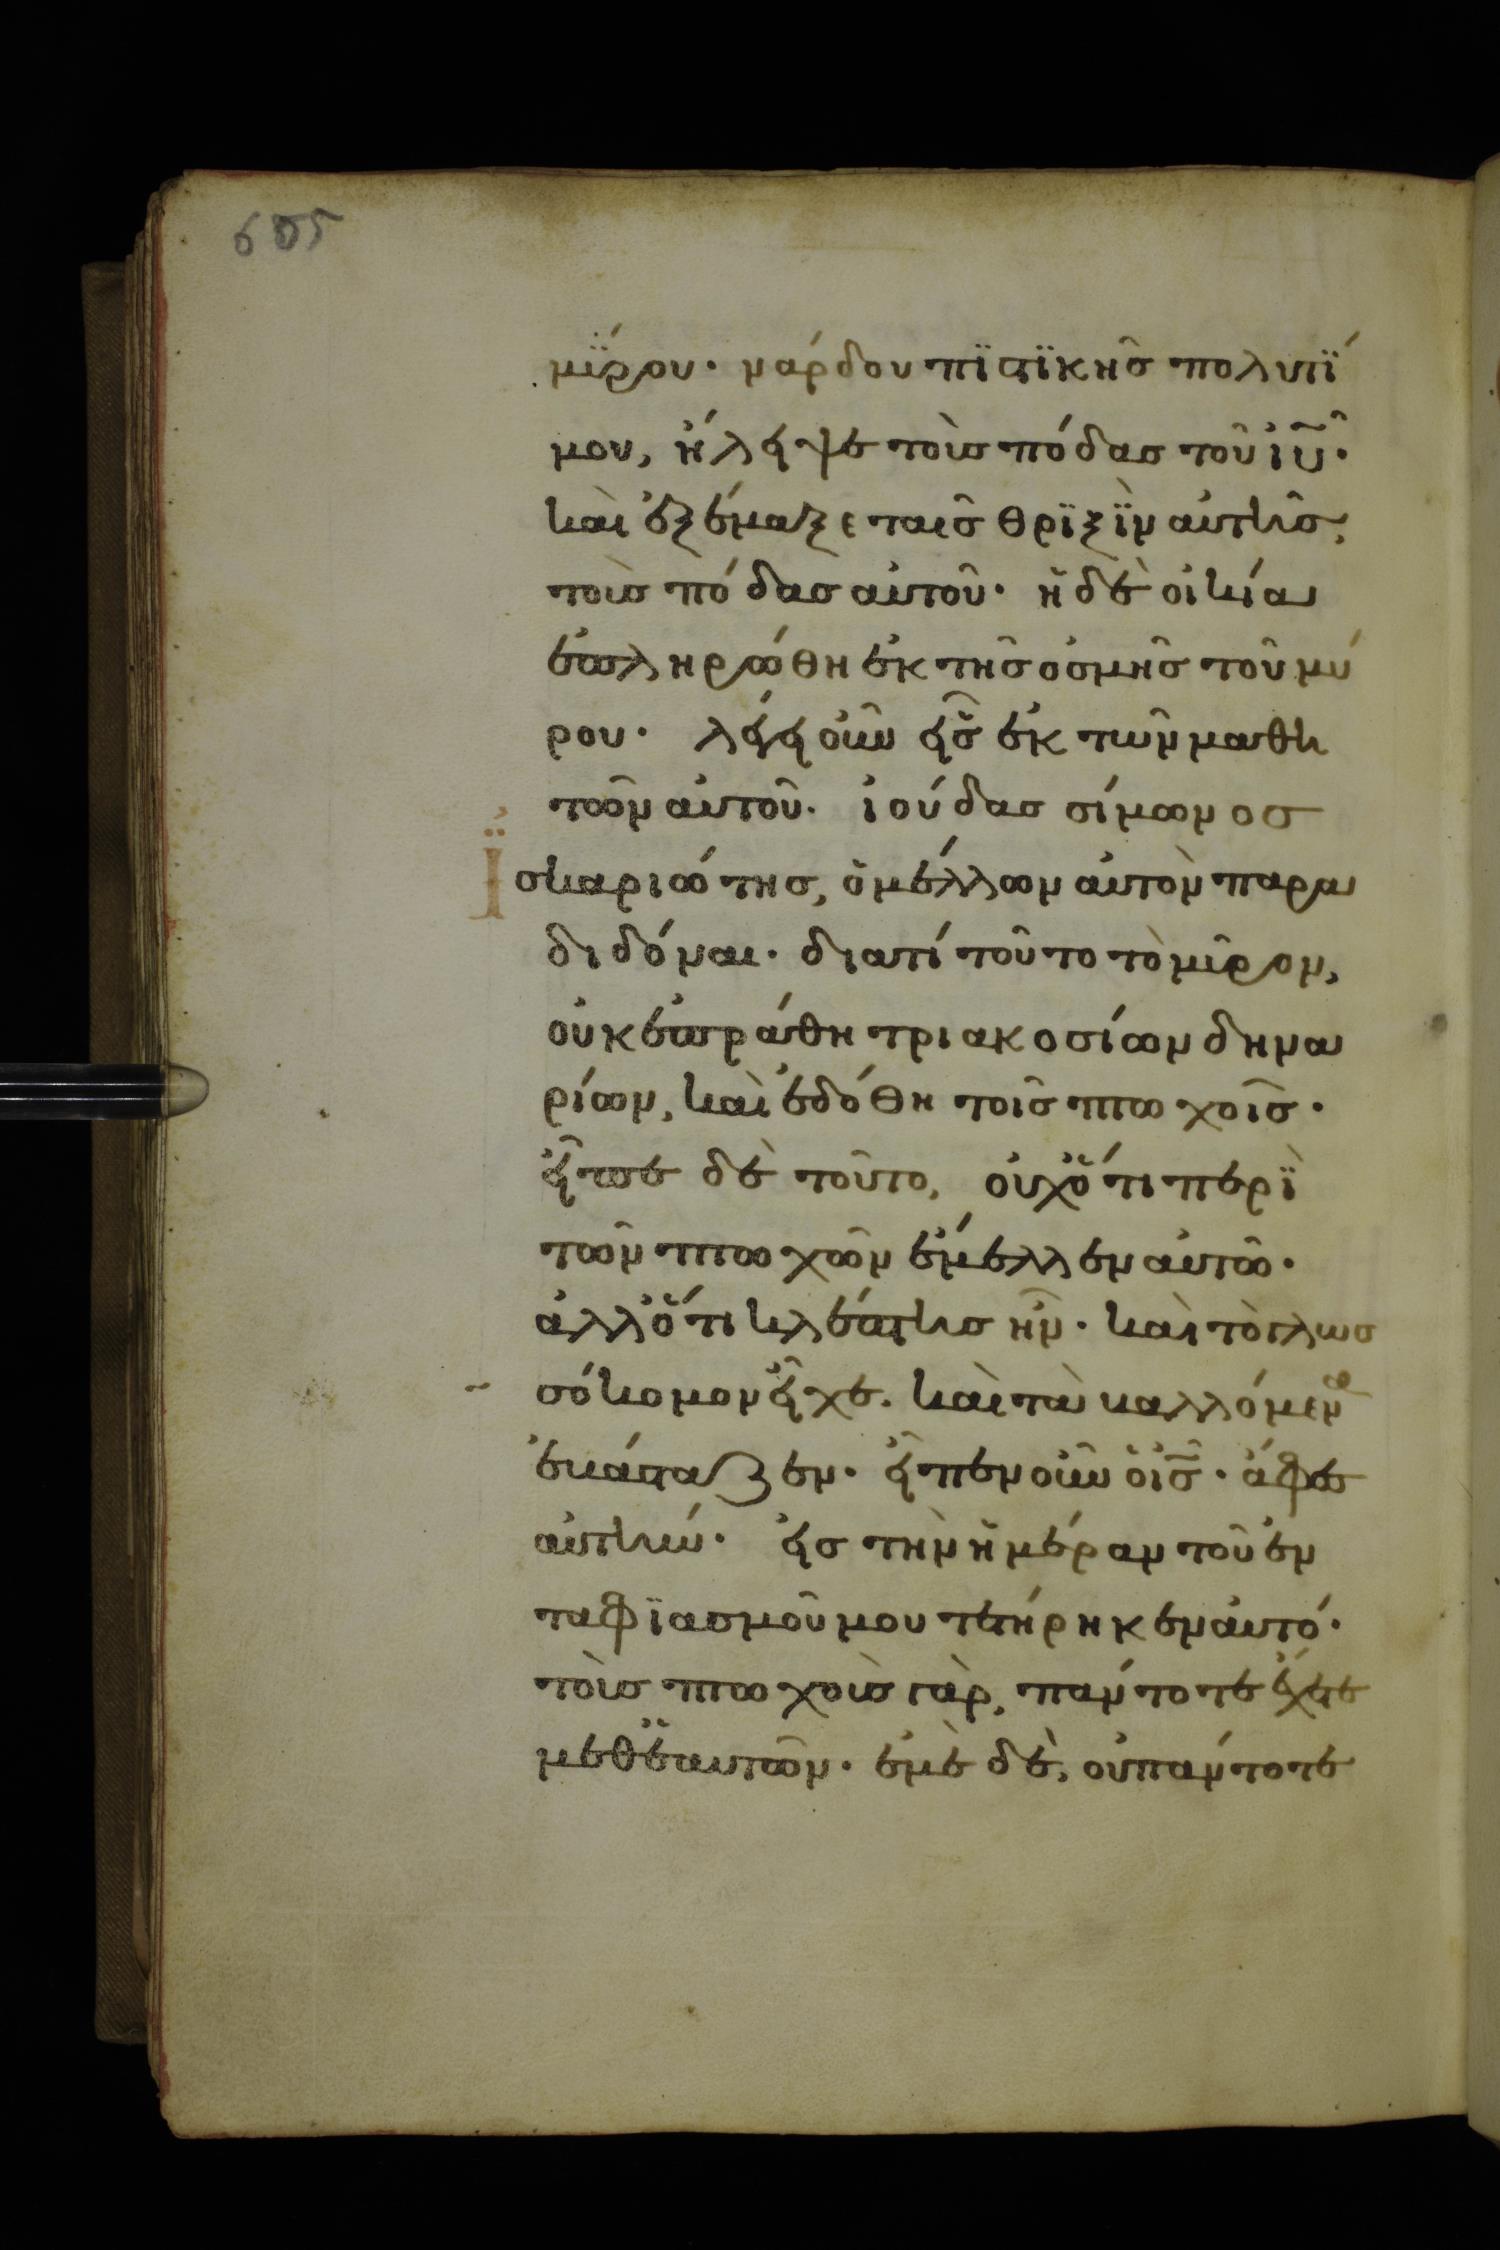 605
μϋρου· νάρδου πϊστϊκῆσ πολυτΐ
μου, ἤλειψε τοὺσ πόδασ τοῦ ἰῦ·
καὶ ἐξέμαξε ταισ̂ θρϊξϊν αὐτῆσ,
τοὺσ πόδασ αὐτοῦ· ἡ δὲ οἰκία
ἐπληρώθη ἐκ τῆσ ὀσμῆσ τοῦ μύ
ρου· λέγει οὖν εἷσ ἐκ τῶν μαθη
τῶν αὐτοῦ· ἰούδασ σίμωνοσ
Ϊσκαριώτησ, ὁ μέλλων αὐτὸν παρα
διδόναι· διατί τοῦτο τὸ μῦρον,
οὐκ ἐπράθη τριακοσίων δηνα
ρίων, καὶ ἐδόθη τοῖσ πτωχοῖσ·
εἶπε δὲ τοῦτο, οὐχ ὅτι περῒ
τῶν πτωχῶν ἔμελλεν αὐτῶ·
ἀλλ ὅτι κλέπτησ ἦν· καὶ τὸ γλωσ
σόκομον εἶχε. καὶ τὰ βαλλόμενα
ἐβάσταζεν· εἶπεν οὖν ὁ ἰσ̄· ἄφεσ
αὐτήν· εἰσ τὴν ἡμέραν τοῦ ἐν
ταφϊασμοῦ μου τετήρηκεν αὐτό·
τοὺσ πτωχοὺσ γὰρ, πάντοτε ἔχετε
μεθ ἑαυτῶν· ἐμὲ δὲ, οὐ πάντοτε